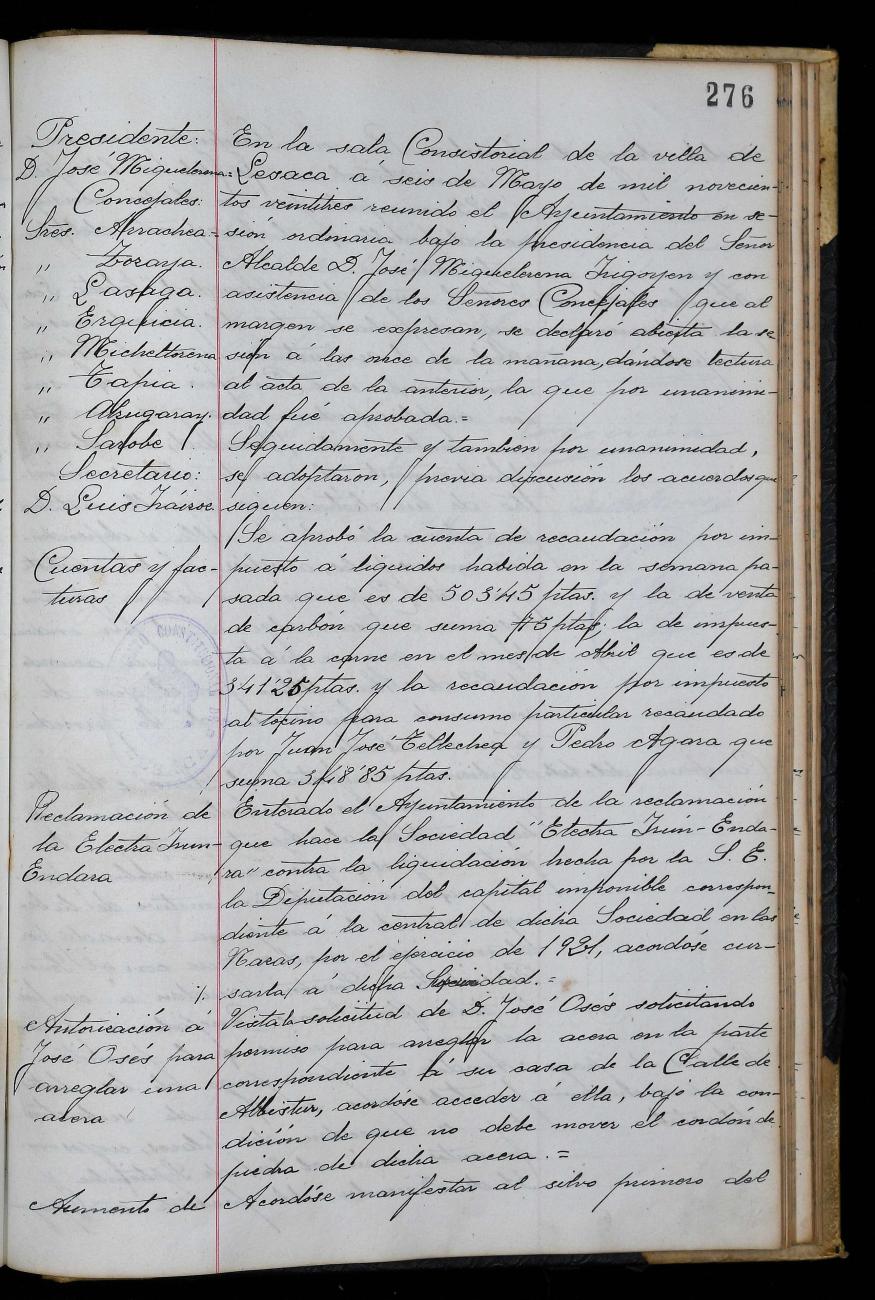 276
Presidente:
D. José Miguelerena=
Concejales:
Sres. Arrachea=
" Zoraya.
" Lasaga.
" Erguicia.
" Micheltorena
" Tapia.
" Alzugaray.
" Sarobe
Secretario:
D. Luis Iráizoz.
En la sala Consistorial de la villa de
Lesaca á seis de Mayo de mil novecien-
tos veintitres reunido el Ayuntamiento en se-
sión ordinaria bajo la presidencia del Señor
Alcalde D. José Miguelerena Irigoyen y con
asistencia de los Señores Concejales que al
margen se expresan, se declaró abierta la se-
sión á las once de la mañana, dándose lectura
al acta de la anterior, la que por unanimi-
dad fué aprobada.=
Seguidamente y tambien por unanimidad,
se adoptaron, previa discusión los acuerdos que
siguen:
Cuentas y fac-
turas
Se aprobó la cuenta de recaudación por im-
puesto á liquidos habida en la semana pa-
sada que es de 503'45 ptas. y la de venta
de carbón que suma 75 ptas; la de impues-
ta á la carne en el mes de Abril que es de
341'25 ptas. y la recaudación por impuesto
al tocino para consumo particular recaudado
por Juan José Tellechea y Pedro Agara que
suma 348'85 ptas.
Reclamación de
la Electra Irun-
Endara
Enterado el Ayuntamiento de la reclamación
que hace la Sociedad "Electra Irún-Enda-
ra" contra la liquidación hecha por la S. E.
la Diputación del capital imponible correspon-
diente á la central de dicha Sociedad en las
Nazas, por el ejercicio de 1921, acordóse cur-
sarla á dicha
Autoricación á
José Osés para
arreglar una
acera
Vista la solicitud de D. José Osés solicitando
permiso para arreglar la acera en la parte
correspondiente á su casa de la Calle de
Albistur, acordóse acceder á ella, bajo la con-
dición de que no debe mover el cordón de
piedra de dicha acera.=
Aumento de
Acordóse manifestar al silvo primero del